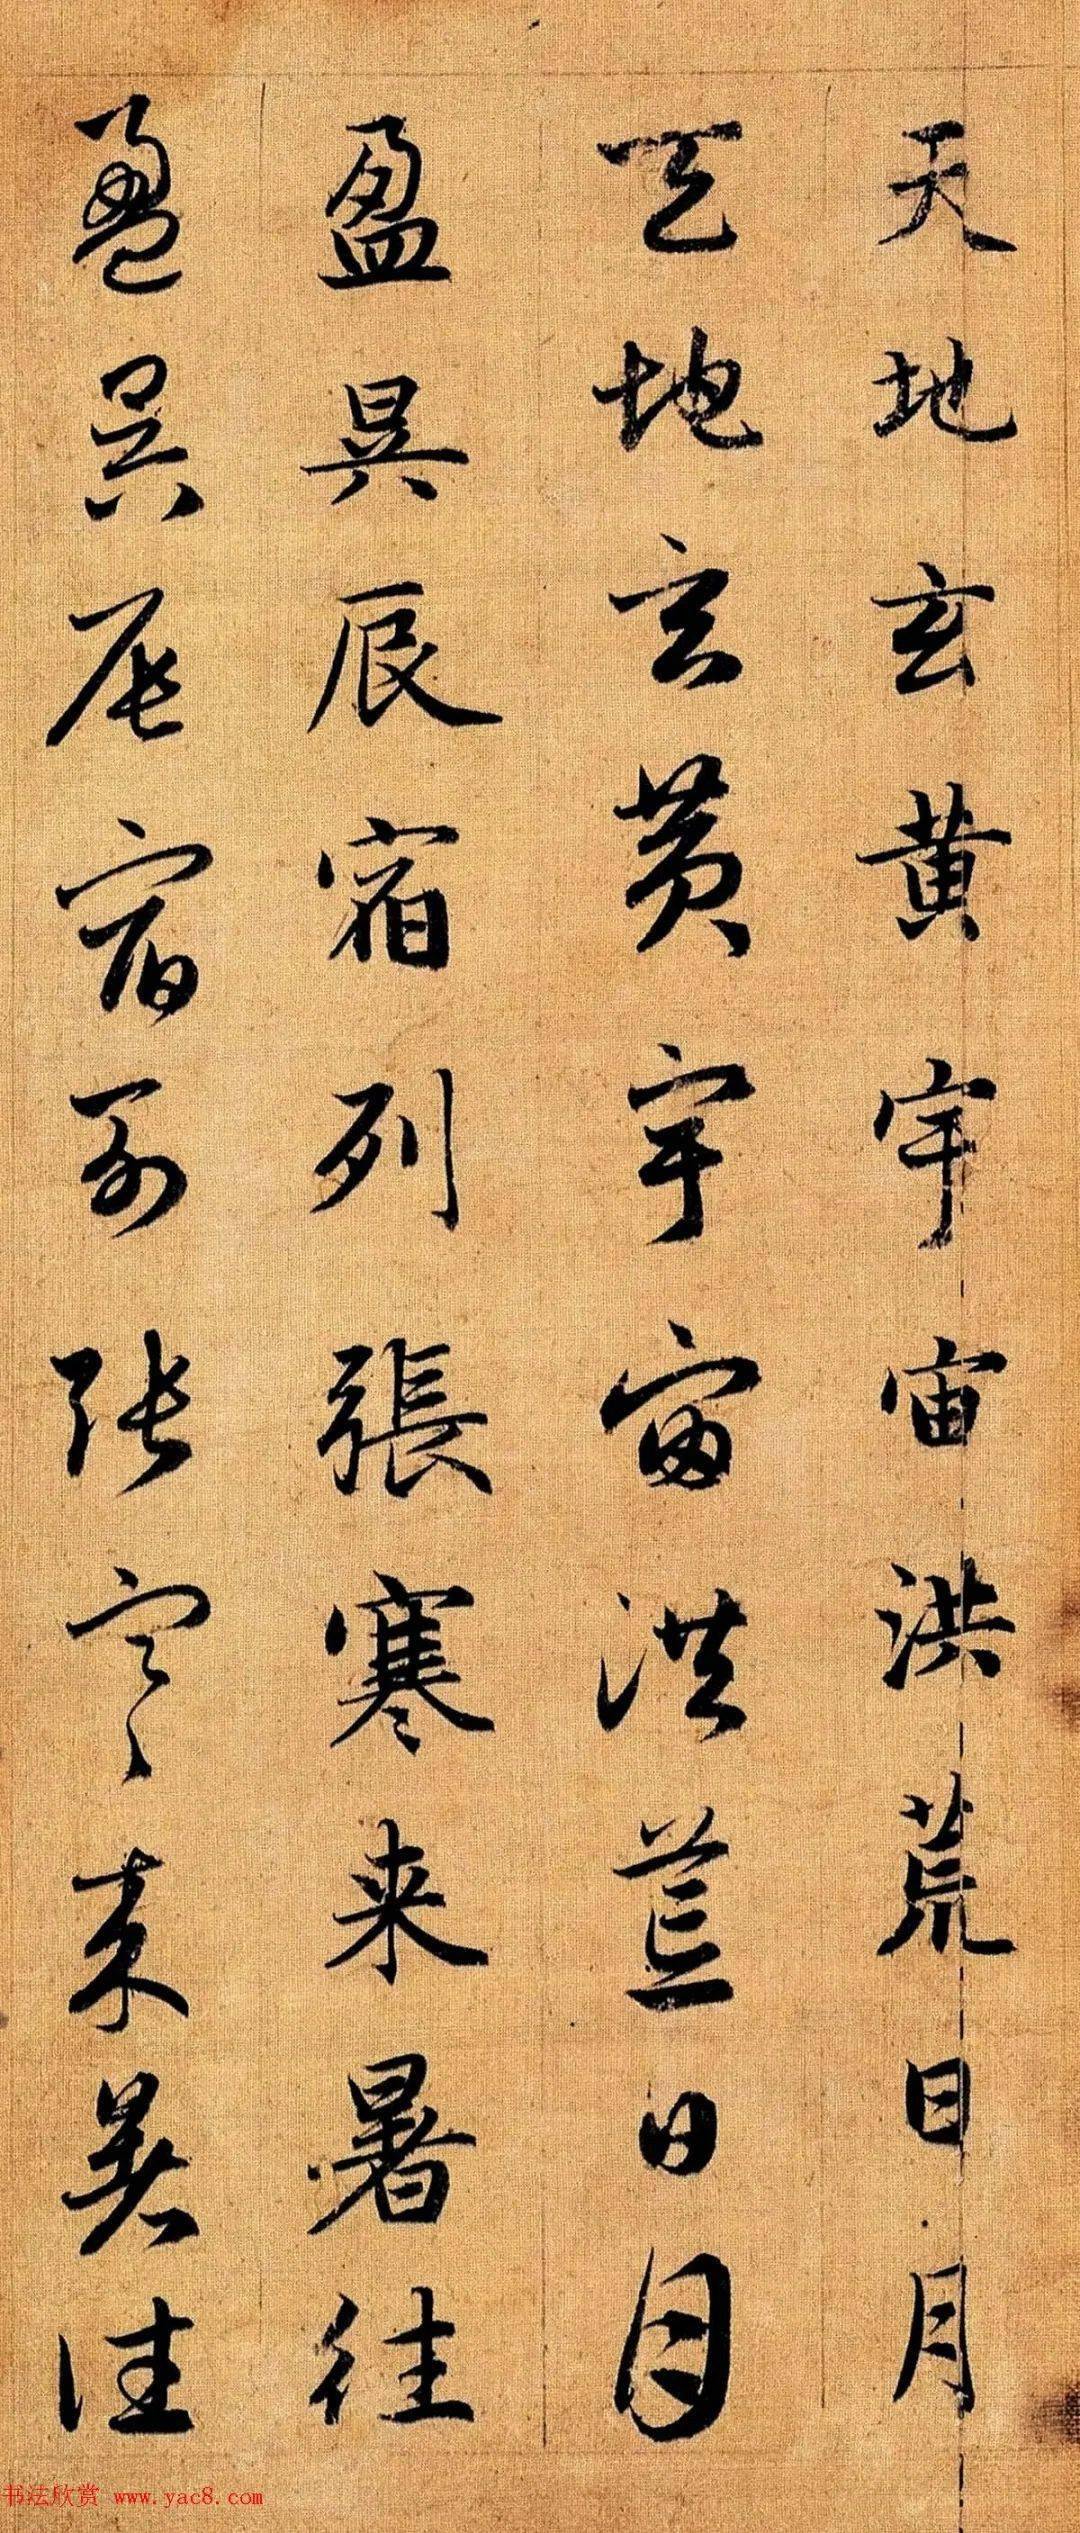 天地玄黃宇宙洪荒日月
天地玄黃宇宙洪荒日月
盈昃辰宿列張寒来暑往
盈昃辰宿列張寒来暑往
书法欣赏 www.yac8.com